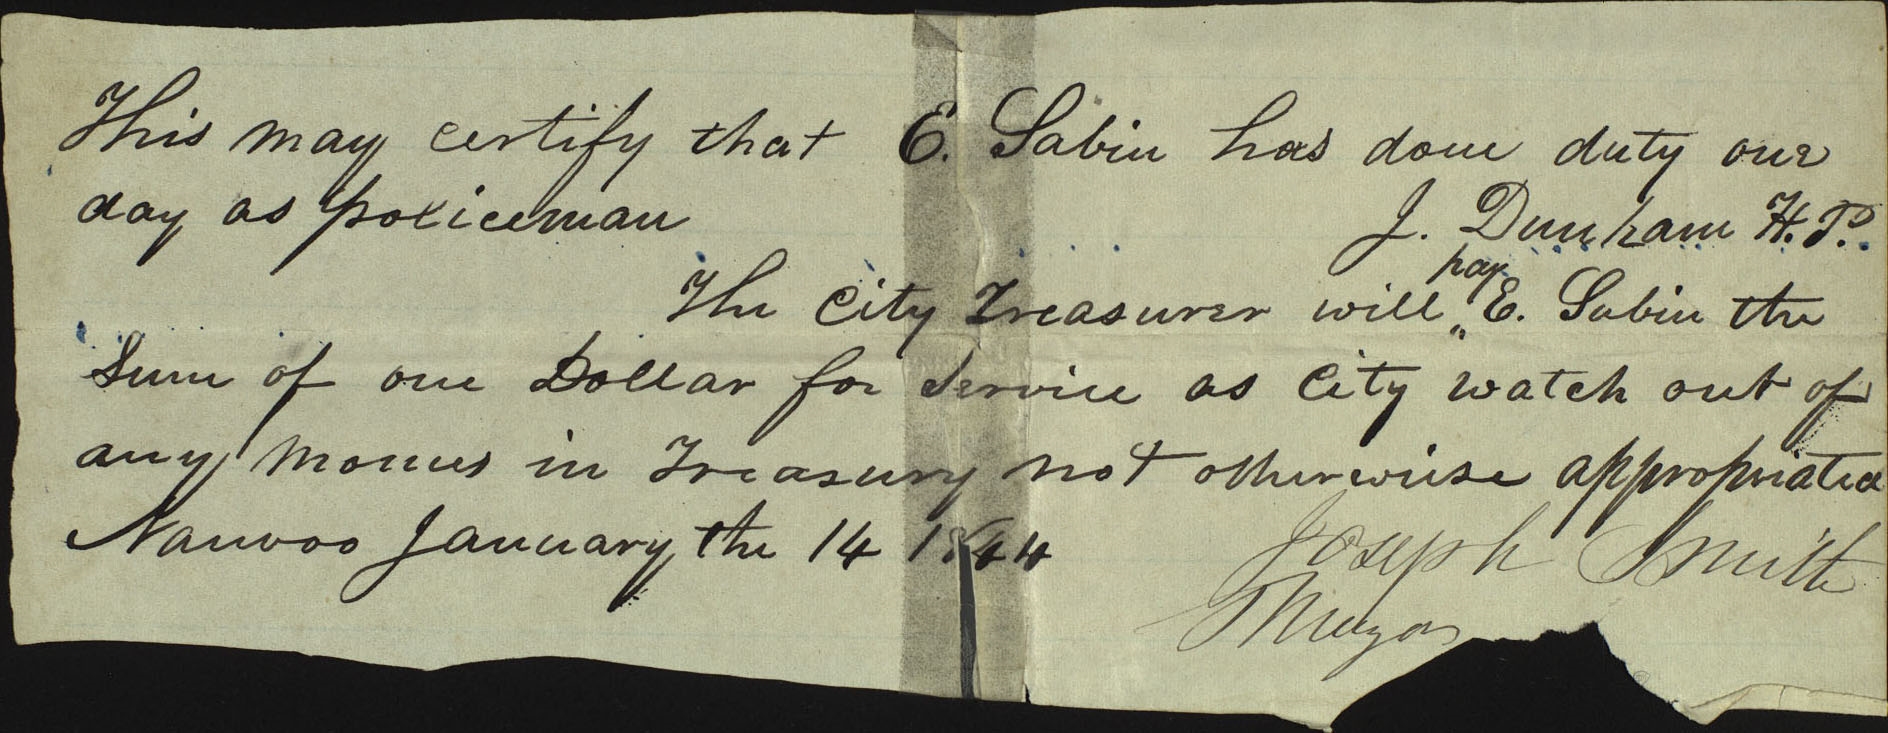 This may certify that E. Sabin has done duty one
day as policeman
J. Dunham H. P.
The City Treasurer will pay E. Sabin the
Sum of one Dollar for Service as City watch out of
any Monies in Treasury not otherwise appropriated
Nauvoo January the 14 1844
Joseph Smith
Mayor